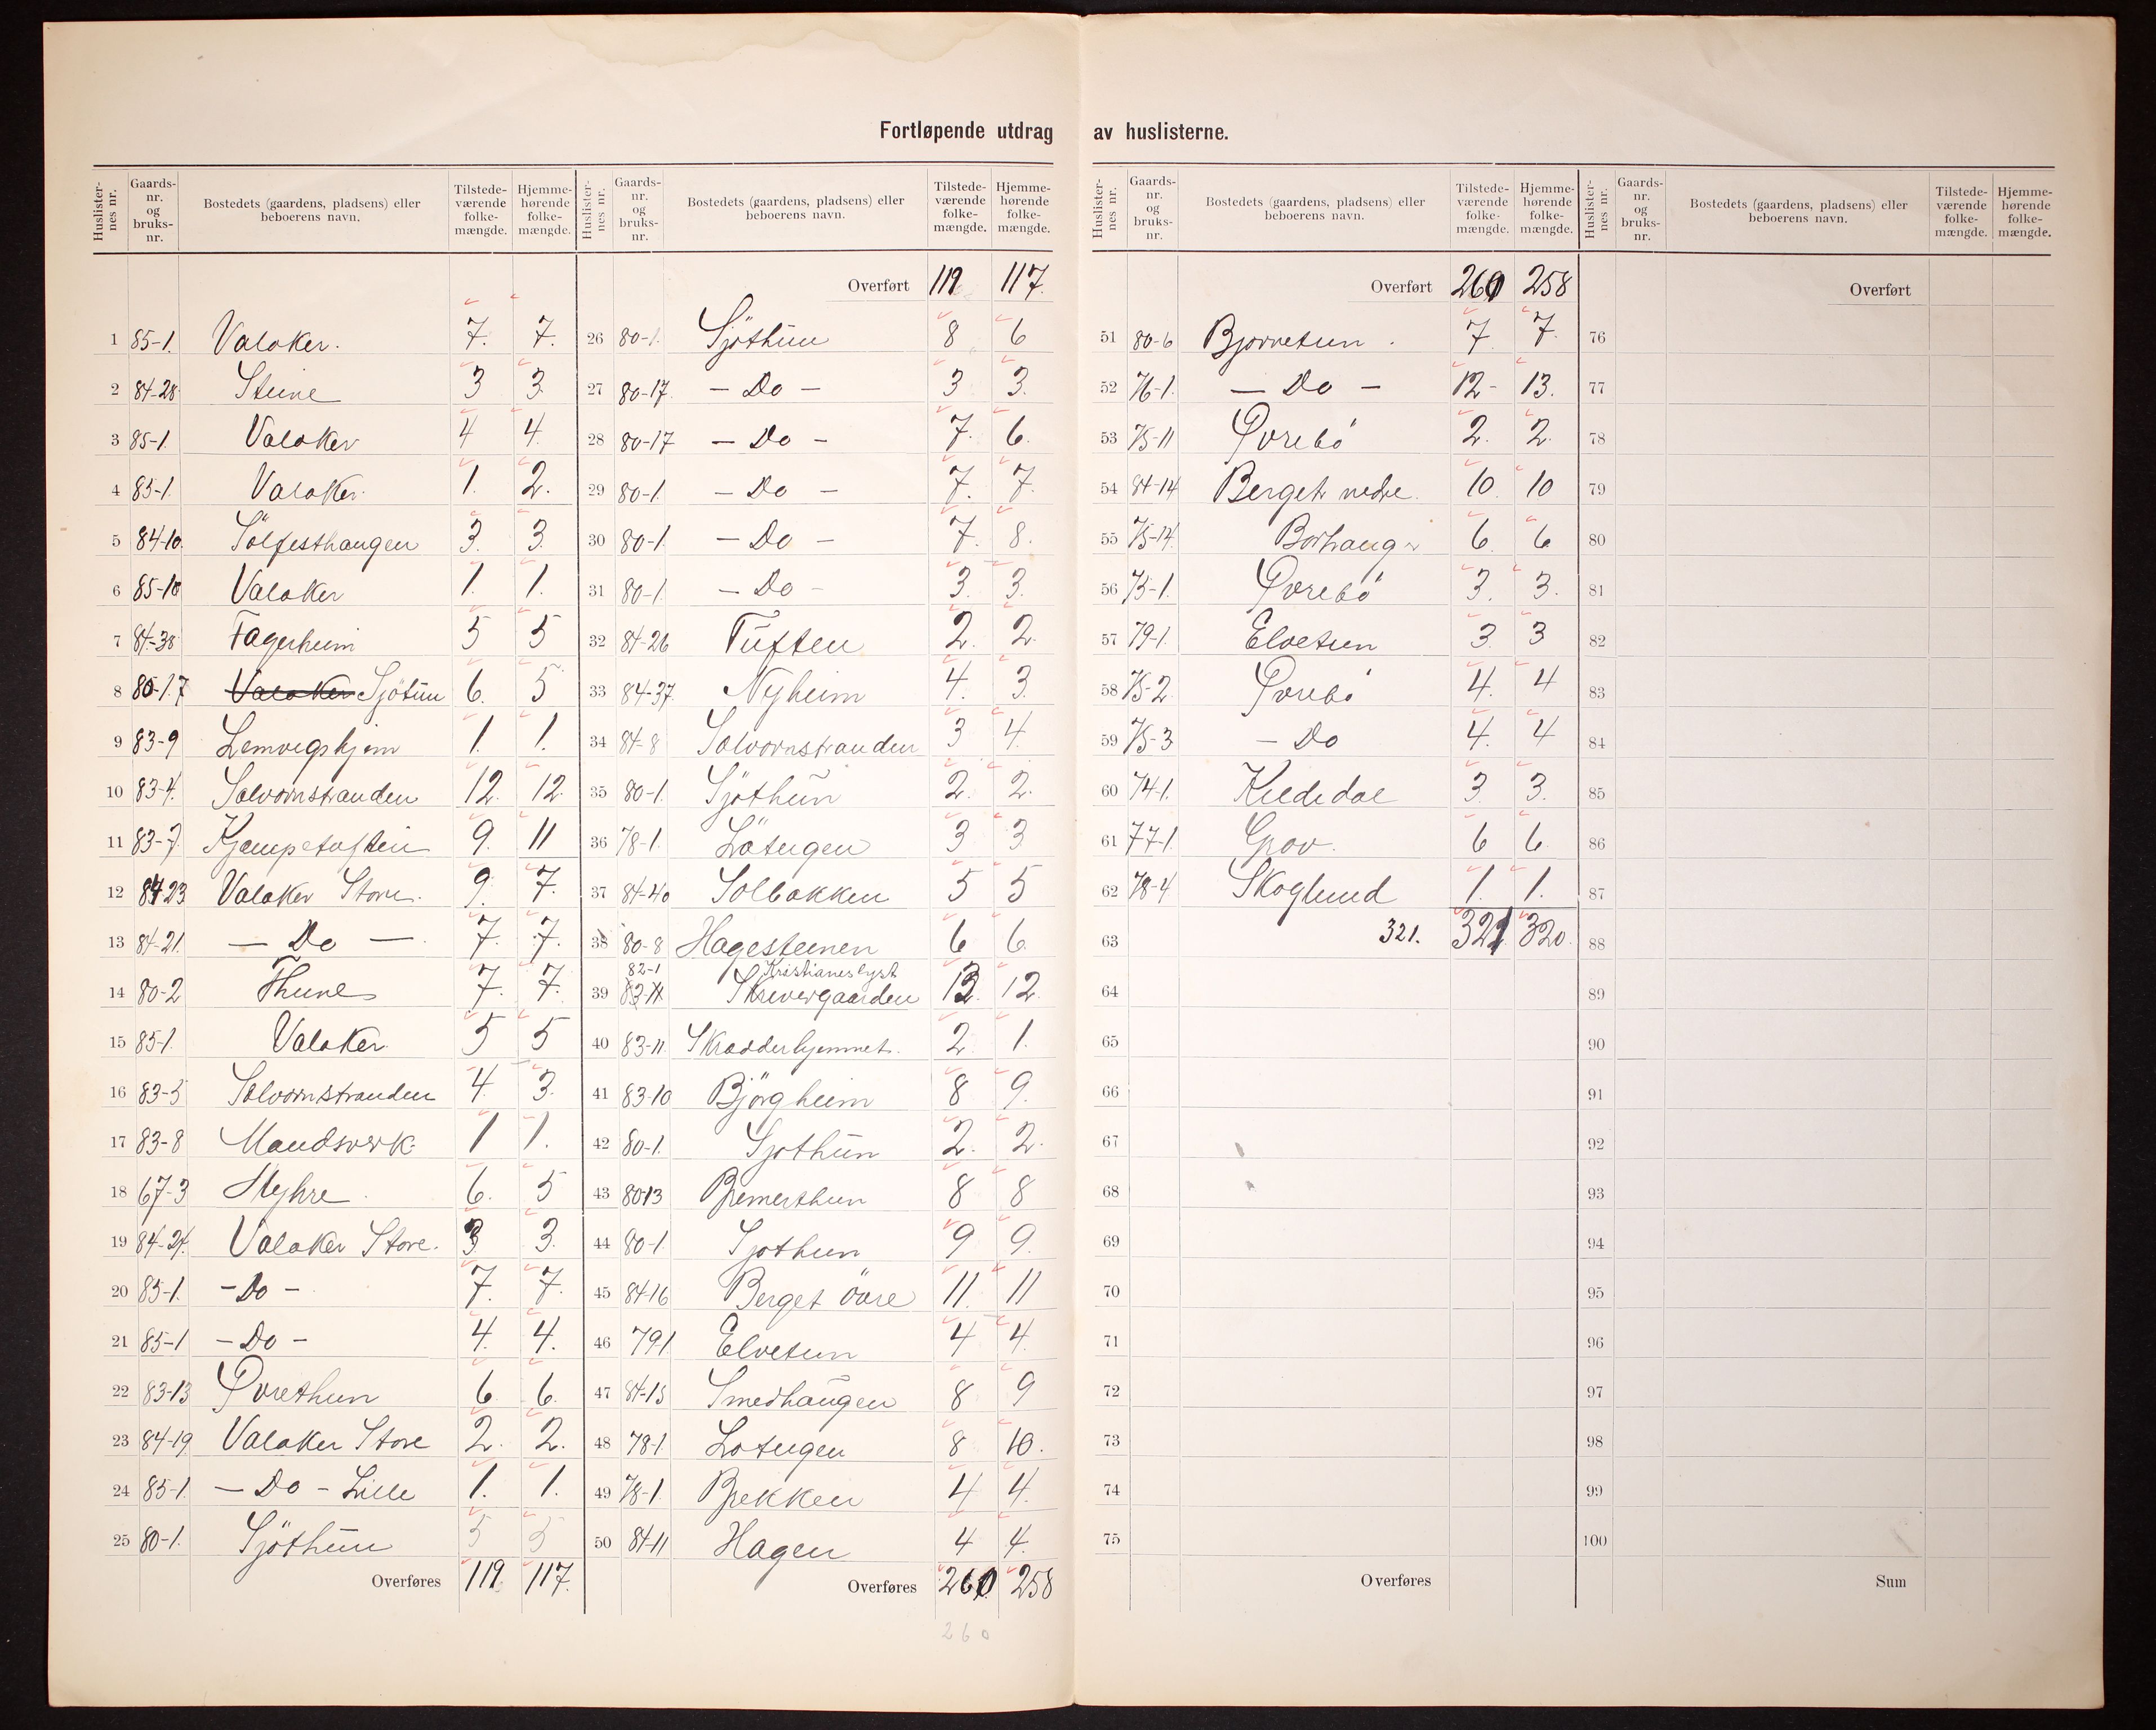 Fortløpende utdrag av huslisterne.
Huslisternes nr. Gaards-nr. og bruks-nr. Bostedets (gaardens, pladsens) eller beboerens navn. Tilstedeværende folkemængde. Hjemmehørende folkemængde.
1 85-1. Valaker. 7. 7.
2 84-28 Steine 3 3
3 85-1. Valaker 4 4.
4 85-1. Valaker. 1. 2.
5 84-10. Sölfesthaugen 3. 3.
6 85-10 Valaker 1. 1.
7 84-38 Fagerheim 5 5
8 80-17 Valaker Sjötun 6. 5
9 83-9 Lemvigshjem 1. 1.
10 83-4. Solvornstranden 12. 12.
11 83-7. Kjempetuften 9. 11
12 84-23 Valaker Store. 9. 7.
13 84-21. — Do — 7. 7.
14 80-2 Thune 7. 7.
15 85-1. Valaker 5 5
16 83-5 Solvornstranden 4. 3.
17 83-8 Mandsverk 1 1.
18 67-3 Myhre 6. 5
19 84-24. Valaker Store. 3 3.
20 85-1. - Do - 7. 7.
21 85-1 - Do - 4. 4.
22 83-13 Øvrethun 6. 6.
23 84-19. Valaker Store 2. 2.
24 85-1. — Do - Lille 1. 1.
25 80-1. Sjöthun 5 5
Overføres 119. 117.
Huslisternes nr. Gaards-nr. og bruks-nr. Bostedets (gaardens, pladsens) eller beboerens navn. Tilstedeværende folkemængde. Hjemmehørende folkemængde.
Overført 119 117.
26 80-1. Sjöthun 8 6
27 80-17. — Do — 3 3.
28 80-17 — Do - 7. 6.
29 80-1. — Do — 7. 7.
30 80-1. — Do — 7. 8.
31 80-1. — Do - 3. 3.
32 84-26 Tuften 2. 2.
33 84-37. Nyheim 4. 3.
34 84-8 Solvornstranden 3 4.
35 80-1. Sjöthun 2. 2.
36 78-1. Lötugen 3 3
37 84-40 Solbakken 5 5
38 80-8 Hagesteinen 6 6.
82-1 Kristianeslyst
39 83-11 Skrivergaarden 13. 12.
40 83-11. Skradderhjemmet. 2 1.
41 83-10 Björgheim 8 9.
42 80-1. Sjothun 2. 2.
43 80-13 Bremerthun 8 8
44 80-1 Sjothun 9 9.
45 84-16 Berget övre 11. 11
46 79-1 Elvetun 4 4.
47 84-15 Smedhaugen 8 9
48 78-1. Lotugen 8 10.
49 78-1. Brekken 4 4.
50 84-11 Hagen 4 4.
Overføres 260. 258
260
Huslisternes nr. Gaards-nr. og bruks-nr. Bostedets (gaardens, pladsens) eller beboerens navn. Tilstedeværende folkemængde. Hjemmehørende folkemængde.
Overført 260 258
51 80-6 Bjorretun. 7. 7.
52 76-1. — Do — 12- 13.
53 75-11 Øvrebö 2. 2.
54 84-14 Berget nedre. 10. 10
55 75-14. Borhaug 6. 6
56 75-1. Øvrebö 3. 3.
57 79-1. Elvetun 3. 3
58 75-2. Øvrebö 4. 4
59 75-3 — Do 4. 4
60 74-1. Kildedal 3. 3.
61 77-1. Grov. 6 6.
62 78-4 Skoglund 1. 1.
63 321. 321 320.
64
65
66
67
68
69
70
71
72
73
74
75
Overføres
Huslisternes nr. Gaards-nr. og bruks-nr. Bostedets (gaardens, pladsens) eller beboerens navn. Tilstedeværende folkemængde. Hjemmehørende folkemængde.
Overført
76
77
78
79
80
81
82
83
84
85
86
87
88
89
90
91
92
93
94
95
96
97
98
99
100
Sum